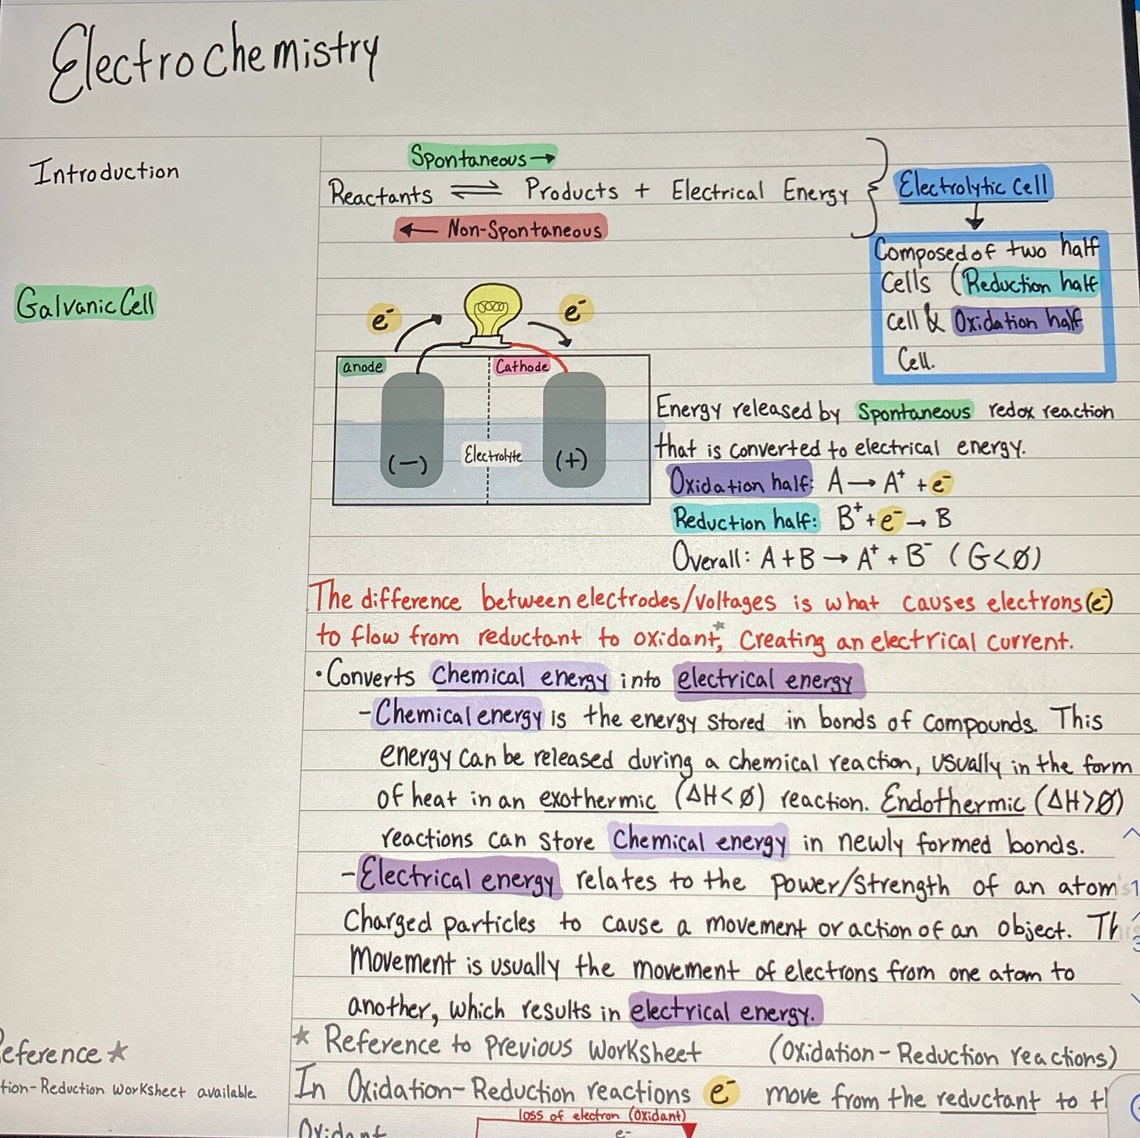 Electrochemistry
Introduction
Spontaneous →
Reactants ⇌ Products + Electrical Energy
← Non-Spontaneous
Electrolytic Cell
Composed of two half
cells (Reduction half
cell & Oxidation half
Cell.
Galvanic Cell
e⁻
e⁻
anode
Cathode
(-)
Electrolyte
(+)
Energy released by Spontaneous redox reaction
that is converted to electrical energy.
Oxidation half: A → A⁺ + e⁻
Reduction half: B⁺ + e⁻ → B
Overall: A + B → A⁺ + B⁻ (G<0)
The difference between electrodes/voltages is what causes electrons (e⁻)
to flow from reductant to oxidant*, creating an electrical current.
• Converts Chemical energy into electrical energy
- Chemical energy is the energy stored in bonds of compounds. This
energy can be released during a chemical reaction, usually in the form
of heat in an exothermic (ΔH<0) reaction. Endothermic (ΔH>0)
reactions can store Chemical energy in newly formed bonds.
- Electrical energy relates to the power/strength of an atom's
Charged particles to cause a movement or action of an object. This
Movement is usually the movement of electrons from one atom to
another, which results in electrical energy.
eference ★
tion-Reduction worksheet available.
★ Reference to previous worksheet (Oxidation-Reduction reactions)
In Oxidation-Reduction reactions e⁻ move from the reductant to th
loss of electron (Oxidant)
e⁻
Oxidant